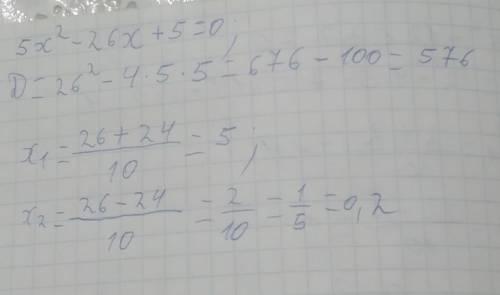 5x² - 26x + 5 = 0;
D = 26² - 4·5·5 = 676 - 100 = 576
x₁ = (26 + 24)/10 = 5;
x₂ = (26 - 24)/10 = 2/10 = 1/5 = 0,2